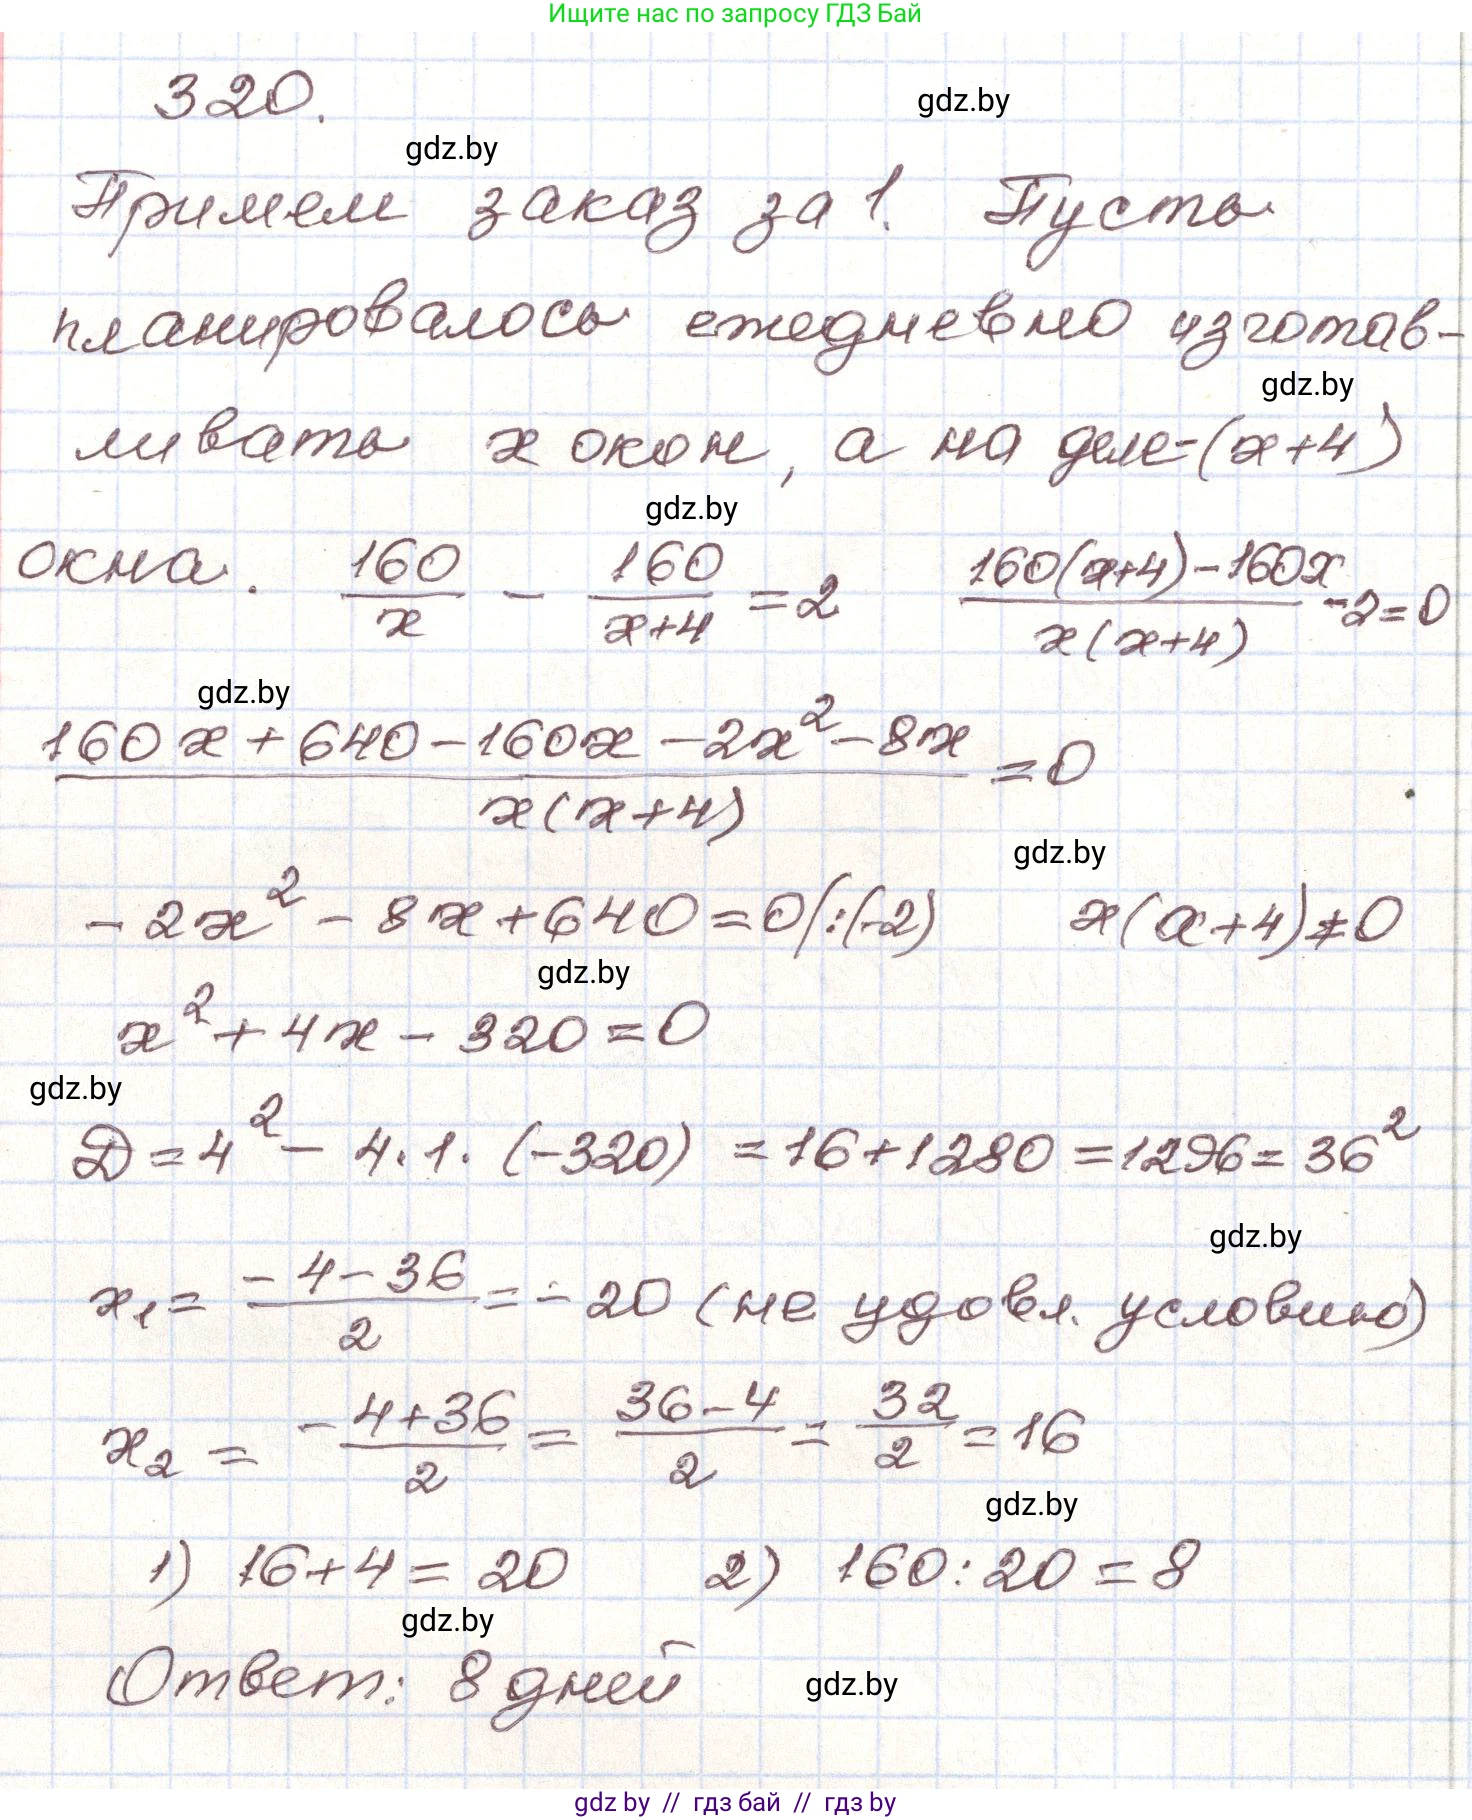 Ищите нас по запросу ГДЗ Бай
320.
gdz.by
gdz.by
Примем заказ за 1. Пусть
планировалось ежедневно изготав-
gdz.by
ливать x окон, а на деле-(x+4)
gdz.by
окна. 160/x - 160/(x+4) = 2 (160(x+4)-160x)/(x(x+4)) -2=0
gdz.by
(160x+640-160x-2x²-8x)/(x(x+4)) =0
gdz.by
-2x²-8x+640=0|:(-2) x(x+4)≠0
gdz.by
x²+4x-320=0
gdz.by
D=4²-4·1·(-320)=16+1280=1296=36²
gdz.by
x₁=(-4-36)/2=-20 (не удовл. условию)
x₂=(-4+36)/2=(36-4)/2=32/2=16
gdz.by
1) 16+4=20 2) 160:20=8
gdz.by
Ответ: 8 дней
gdz.by
gdz by // гдз бай // гдз by